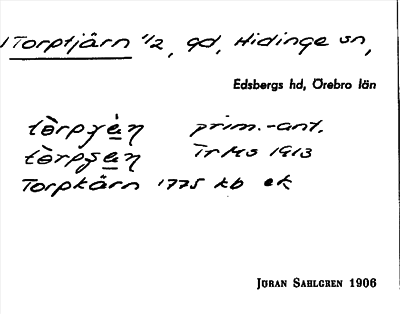 1 Torptjärn 1/2, gd, Hidinge sn,
Edsbergs hd, Örebro län
tòrpyὲn prim.-ant.
tòrpsæn Tr Ms 1913
Torpkärn 1775 kb ek
JÖRAN SAHLGREN 1906